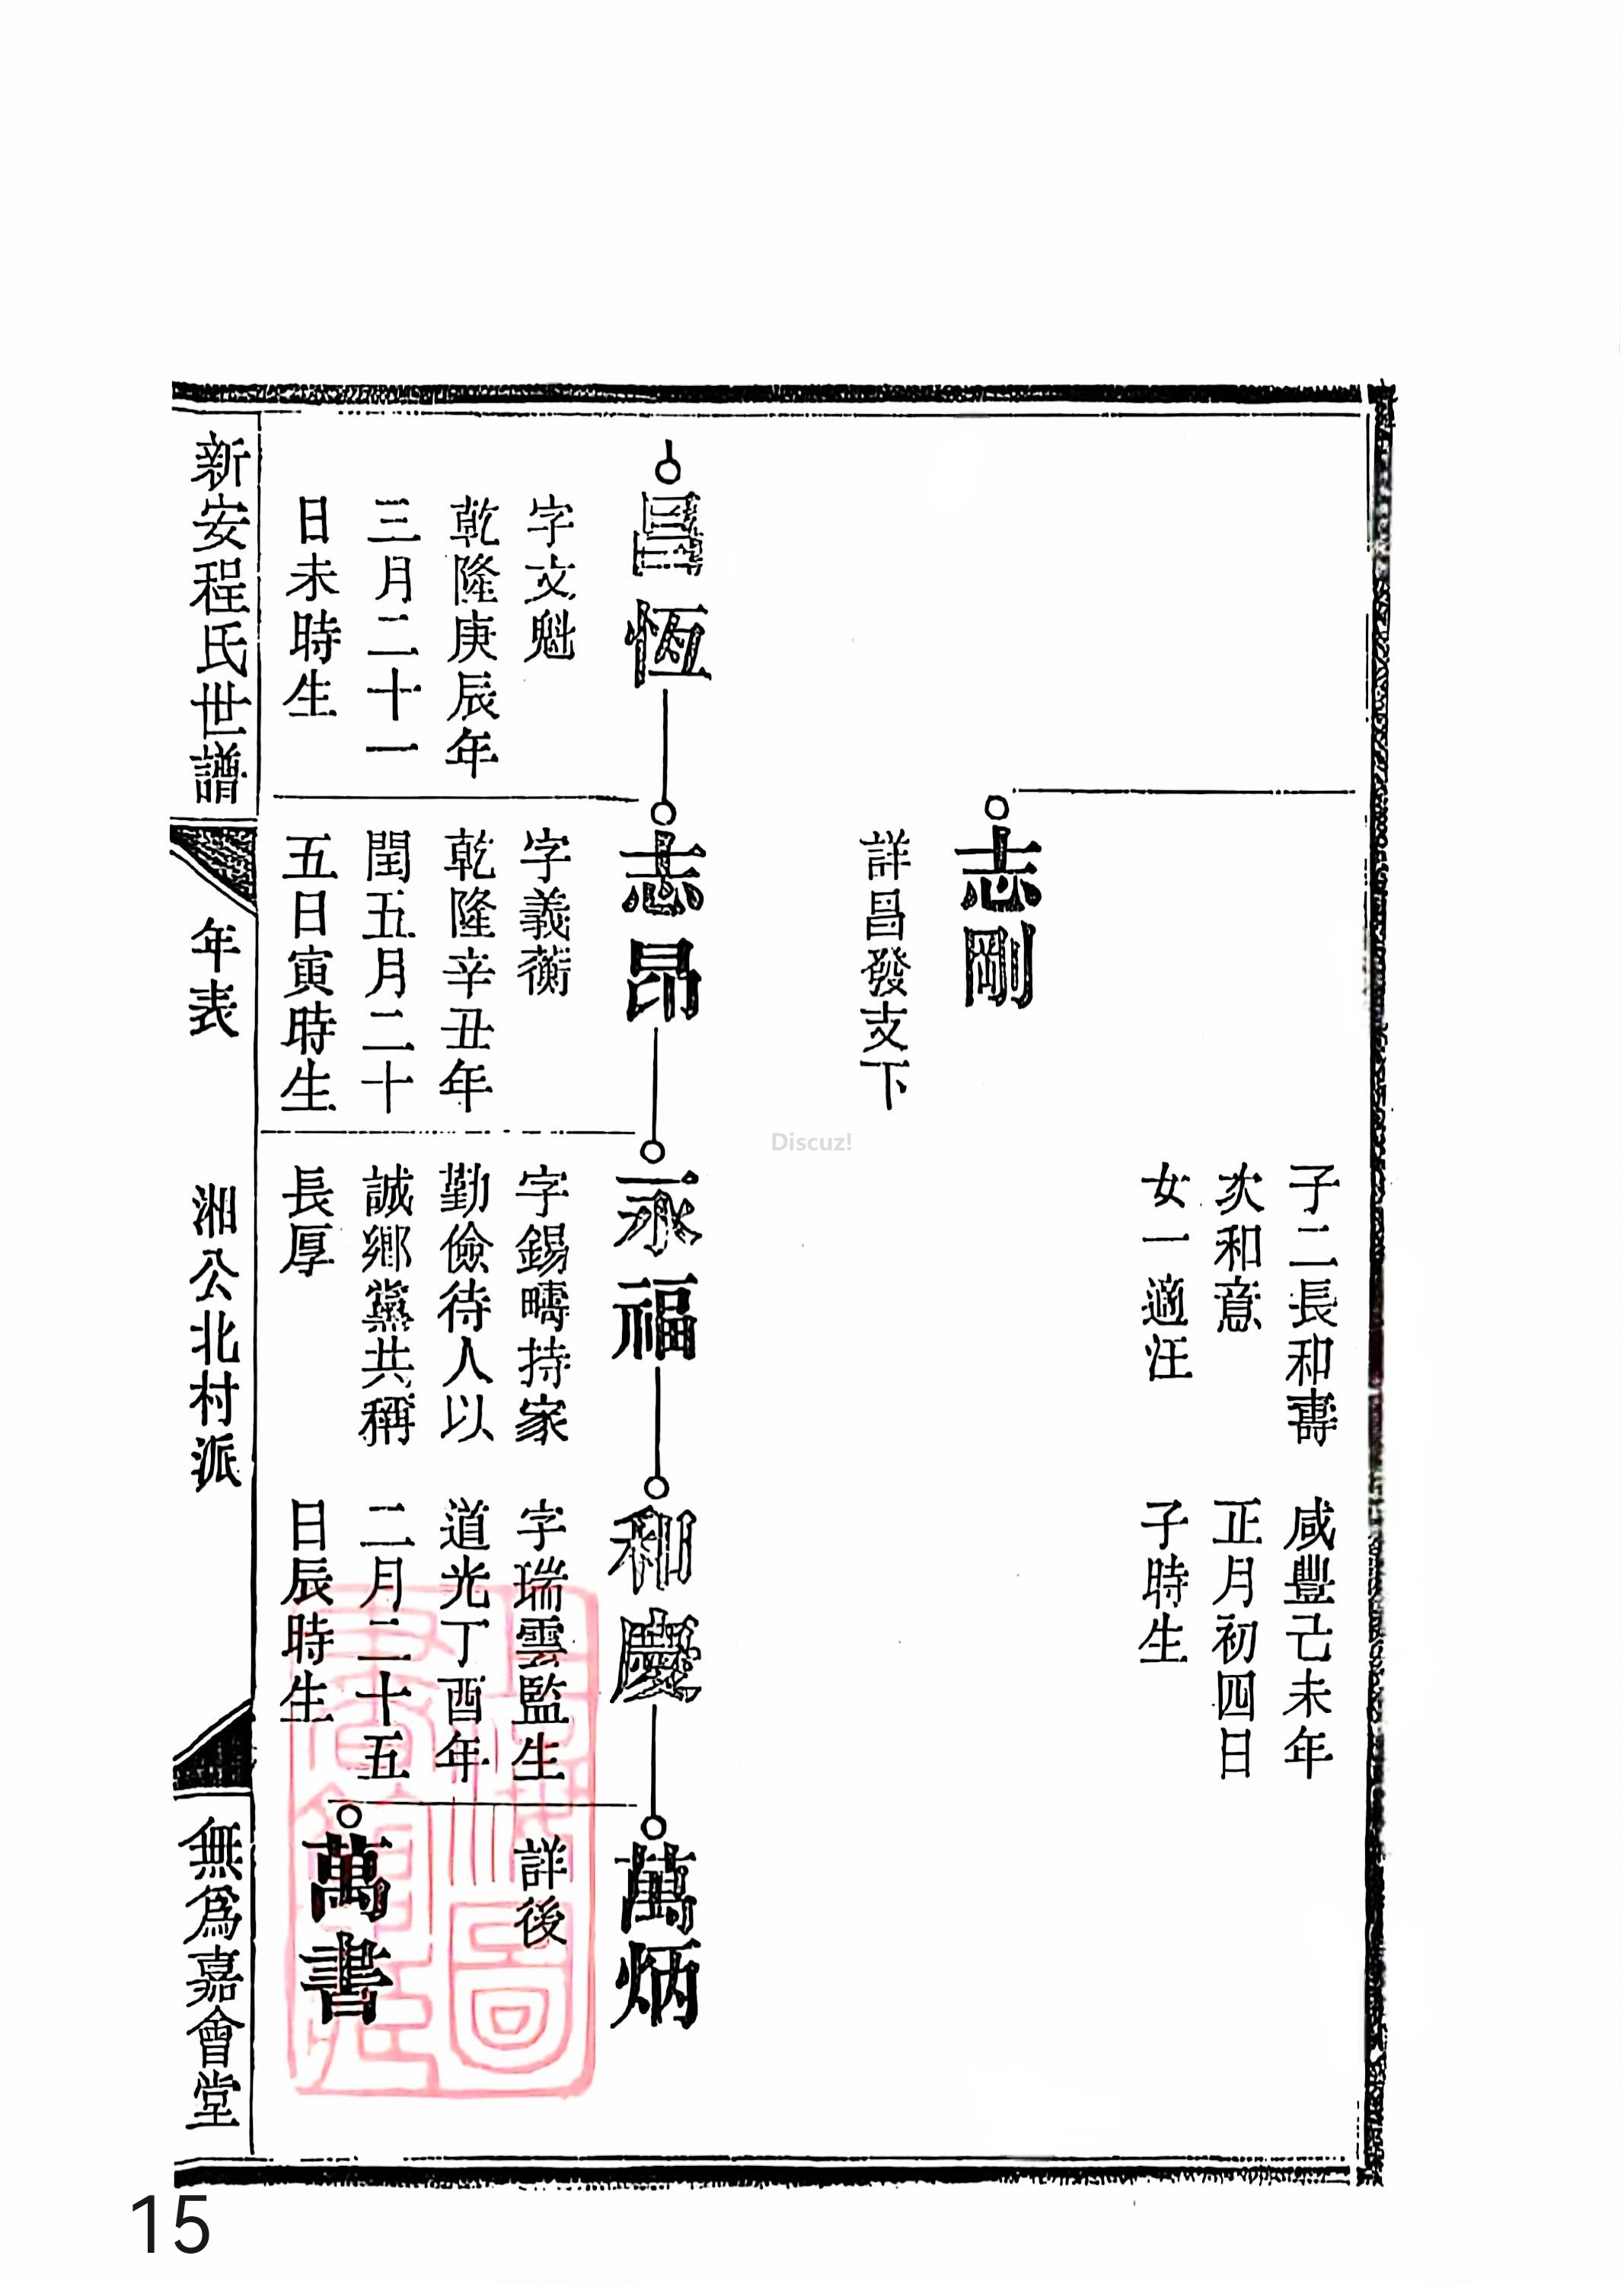 子二長和壽
次和意
女一適汪
咸豐己未年
正月初四日
子時生
志剛
詳昌發支下
昌恆
字文魁
乾隆庚辰年
三月二十一
日未時生
志昂
字義蘅
乾隆辛丑年
閏五月二十
五日寅時生
永福
字錫疇持家
勤儉待人以
誠鄉黨共稱
長厚
和慶
字瑞雲監生
道光丁酉年
二月二十五
日辰時生
萬炳
詳後
萬書
新安程氏世譜
年表
湘公北村派
無為嘉會堂
Discuz!
15